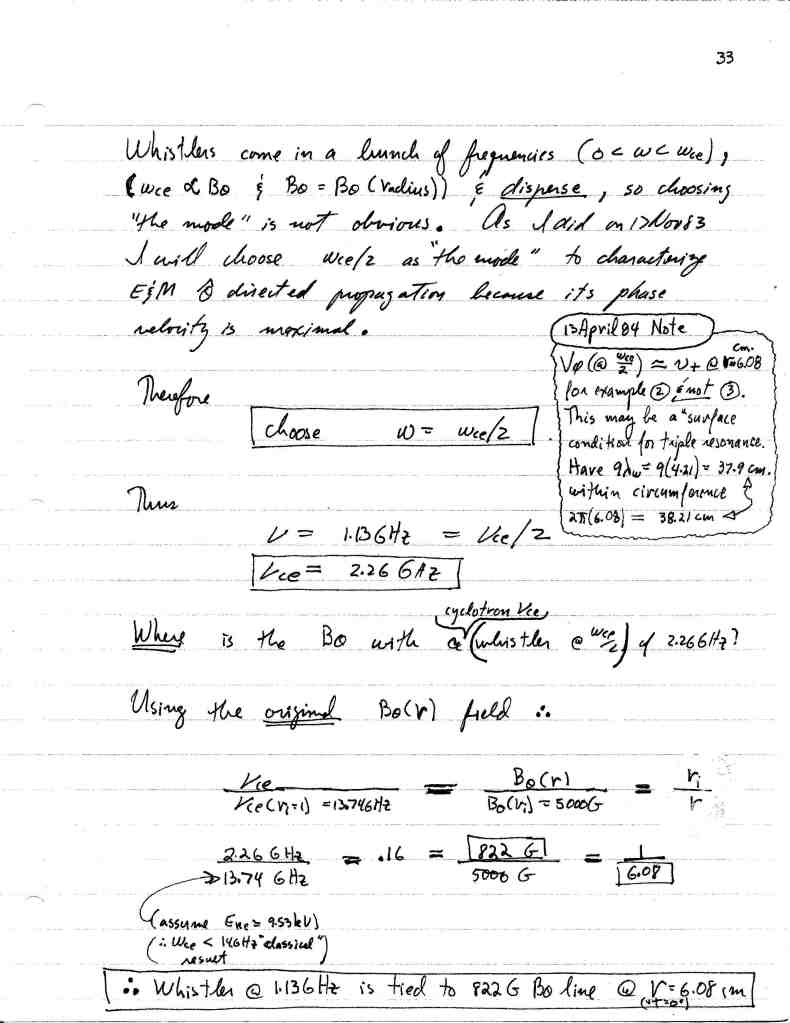 33
Whistlers come in a bunch of frequencies (0 < ω < ωce),
(ωce ∝ Bθ & Bθ = Bθ(radius)) & disperse, so choosing
"the mode" is not obvious. As I did on 17Nov83
I will choose ωce/2 as "the mode" to characterize
E&M θ̂ directed propagation because its phase
velocity is maximal.
13April84 Note
Vφ(@ ωce/2) ≈ v+ @ r=6.08 cm.
for example ② & not ③.
This may be a "surface
condition for triple resonance.
Have 9λω = 9(4.21) = 37.9 cm.
within circumference
2π(6.08) = 38.21 cm
Therefore
choose ω = ωce/2
Thus
ν = 1.13GHz = νce/2
νce = 2.26 GHz
cyclotron νce
Where is the Bθ with a (whistler @ ωce/2) of 2.26GHz?
Using the original Bθ(r) field ∴
νce / νce(ri=1) = 13.74GHz = Bθ(r) / Bθ(ri) = 5000G = ri / r
2.26 GHz / 13.74 GHz = .16 = 822 G / 5000 G = 1 / 6.08
(assume Ene = 9.53kV)
(∴ ωce < 14GHz "classical"
result)
∴ Whistler @ 1.13GHz is tied to 822G Bθ line @ r = 6.08 cm